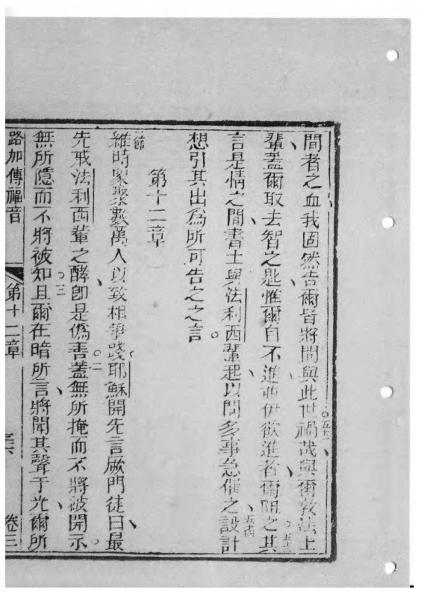 間者之血我固然告爾皆將問與此世禍哉與爾教法士
輩蓋爾取去智之匙惟爾自不進並伊欲進者爾阻之其
言是情之間書士與法利西輩起以問多事急催之設計
想引其出為所可告之之言
第十二章
雖時眾聚數萬人以致相爭踐耶穌開先言厥門徒曰最
先戒法利西輩之酵即是偽善蓋無所掩而不將被開示
無所隱而不將被知且爾在暗所言將聞其聲于光爾所
路加傳福音 第十二章 卷三